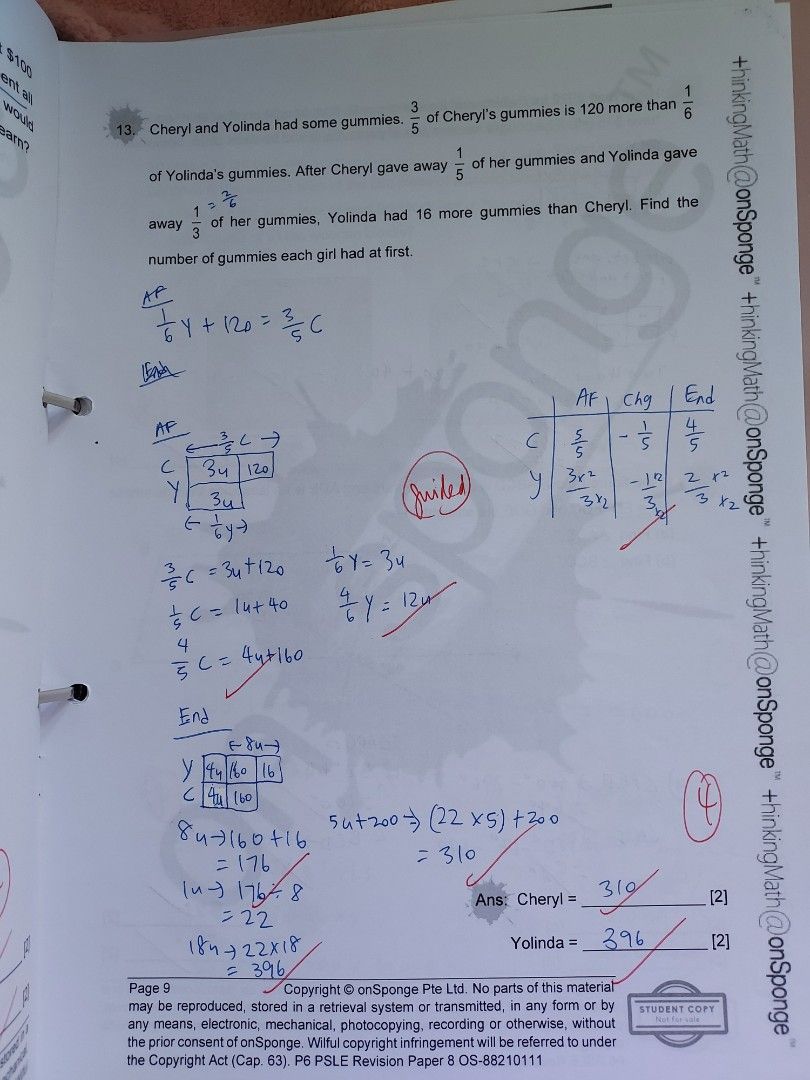 t $100
ent all
would
earn?
13. Cheryl and Yolinda had some gummies. 3/5 of Cheryl's gummies is 120 more than 1/6
of Yolinda's gummies. After Cheryl gave away 1/5 of her gummies and Yolinda gave
= 2/6
away 1/3 of her gummies, Yolinda had 16 more gummies than Cheryl. Find the
number of gummies each girl had at first.
AF
1/6 Y + 120 = 3/5 C
End
AF Chg End
C 5/5 - 1/5 4/5
Y 3x2/3x2 -1x2/3x2 2x2/3x2
AF
← 3/5 C →
C 3u 120
Y 3u
← 1/6 y →
guided
3/5 C = 3u+120 1/6 Y = 3u
1/5 C = 1u+40 4/6 Y = 12u
4/5 C = 4u+160
End
← 8u →
Y 4u 160 16
C 4u 160
8u → 160+16
= 176
1u → 176 ÷ 8
= 22
18u → 22x18
= 396
5u+200 → (22 x5) + 200
= 310
4
Ans: Cheryl = 310 [2]
Yolinda = 396 [2]
Page 9 Copyright © onSponge Pte Ltd. No parts of this material
may be reproduced, stored in a retrieval system or transmitted, in any form or by
any means, electronic, mechanical, photocopying, recording or otherwise, without
the prior consent of onSponge. Wilful copyright infringement will be referred to under
the Copyright Act (Cap. 63). P6 PSLE Revision Paper 8 OS-88210111
STUDENT COPY
Not for sale
+hinkingMath@onSponge™ +hinkingMath@onSponge™ +hinkingMath@onSponge™ +hinkingMath@onSponge™